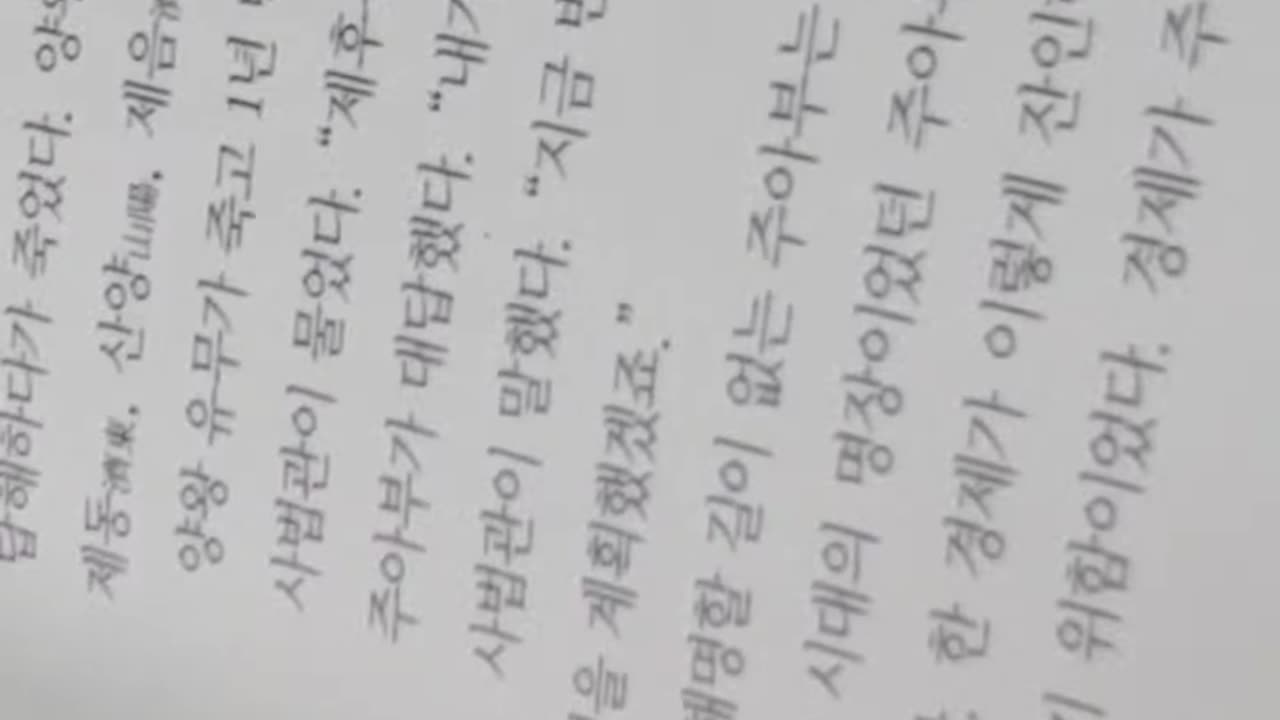 답해하다가 죽었다.
제동濟東, 산양山陽, 제음
양왕 유무가 죽고 1년
사법관이 물었다. “제후
주아부가 대답했다. “내가
사법관이 말했다. “지금
을 계획했겠죠.”
해명할 길이 없는 주아부는
시대의 명장이었던 주아
한 경제가 이렇게 잔인
위함이었다. 경제가 주